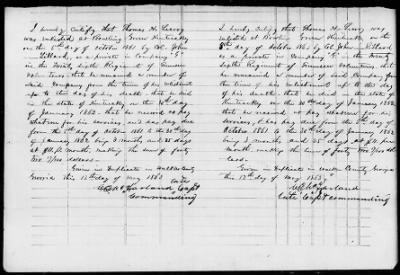 I hereby Certify that Thomas H. Leroy
was enlisted at Bowling Green Kentucky
on the 5th day of October 1861 by Col. John
Dillard, as a private in Company
in the Twenty Eighth Regiment of Tennessee
Volunteers that he remained a member of
said Company from the time of his enlistment
up to the day of his death that he died in
the state of Kentucky on the 30th day
of January 1862. that he received no pay
whatever for his services, and pay due
from the 5th day of October 1861 to the 30th day
of January 1862 being 3 months and 25 days
at $11. pr month, making the sum of forty
two dollars.
Given in Duplicate in Walker County
Georgia this 13th day of May 1863
Capt
Commanding
I hereby Certify that Thomas H. Leroy was
enlisted at Bowling Green Kentucky on the
5th day of October 1861 by Col. John Dillard
as a private in Company in the Twenty
Eighth Regiment of Tennessee Volunteers that
he remained a member of said Company from
the time of his enlistment up to this day
of his death that he died in the state of
Kentucky on the 30th day of January 1862
that he received no pay whatever for his
services, & has pay due from the 5th day of
October 1861 to the 30th day of January 1862
being 3 months and 25 days at $11. pr
month making the sum of forty two
Given in Duplicate in Walker County Georgia
this 13th day of May 1863
Capt commanding